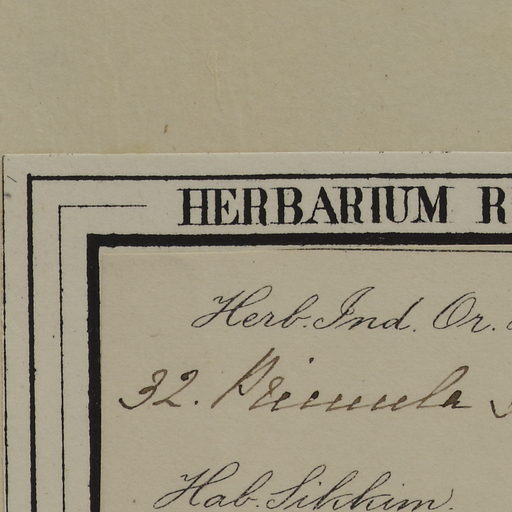 HERBARIUM R
Herb. Ind. Or.
32. Primula
Hab. Sikkim.